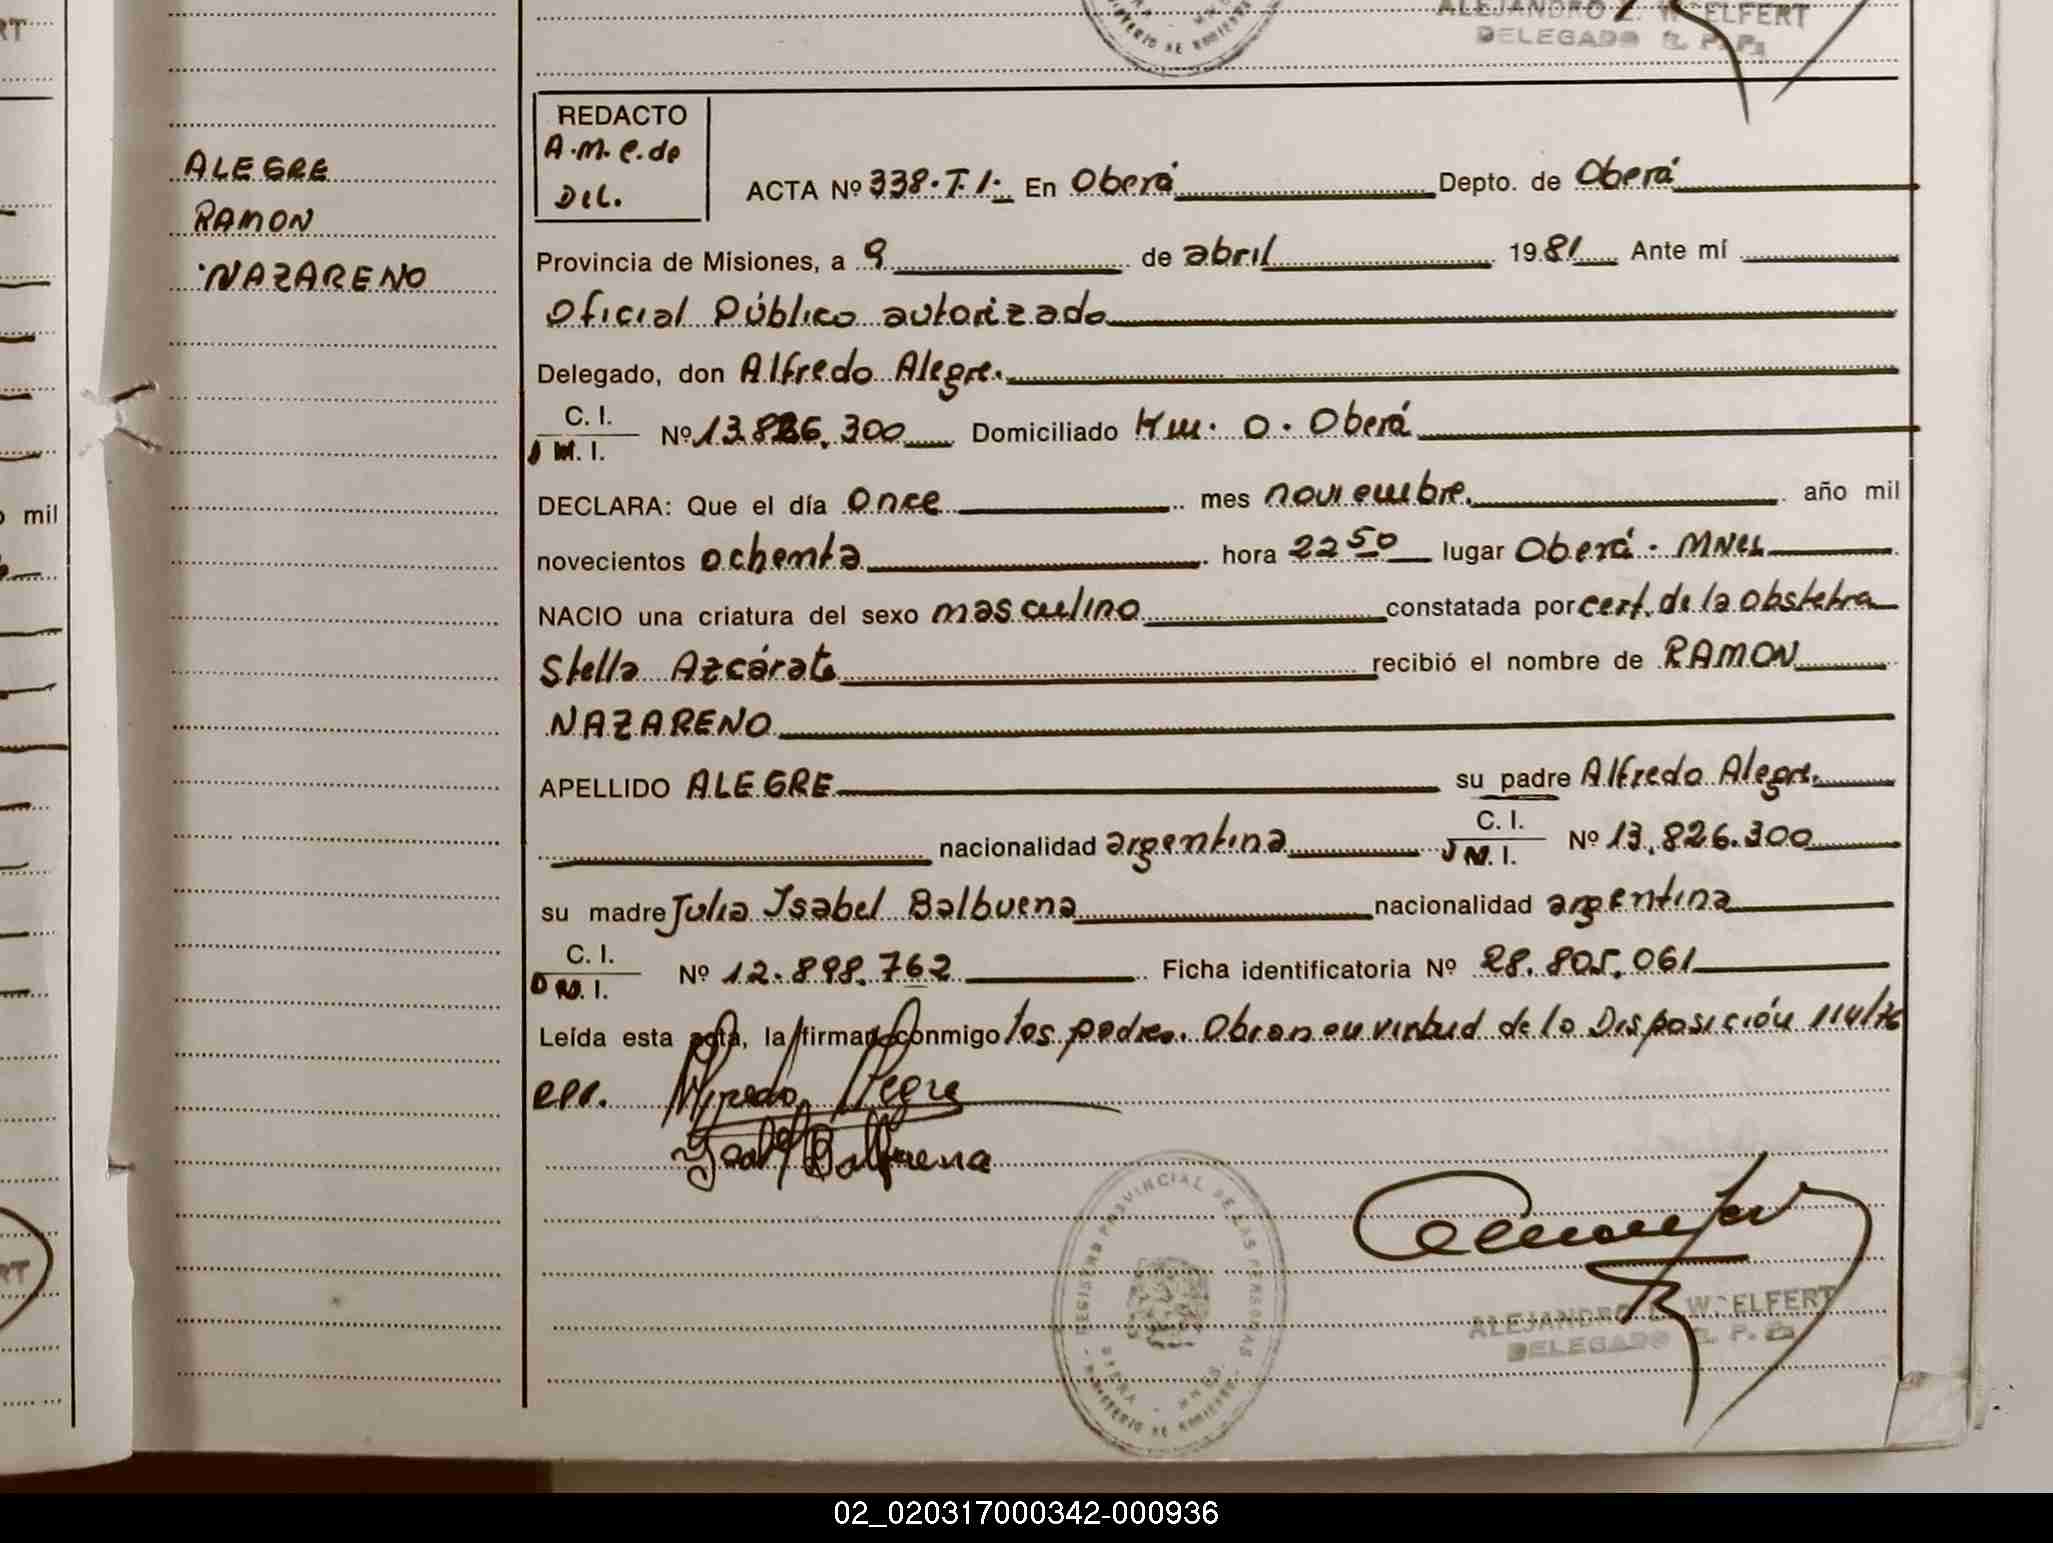 ALEJANDRO E. WOELFERT
DELEGADO R. P. Ps
ALEGRE
RAMON
NAZARENO
REDACTO
A.M.C. de
DEL.
ACTA Nº 338.T.I. En Oberá Depto. de Oberá
Provincia de Misiones, a 9 de abril 1981 Ante mí
Oficial Público autorizado
Delegado, don Alfredo Alegre.
C. I.
Nº 13.826.300 Domiciliado Km. 0. Oberá
M. I.
DECLARA: Que el día once mes noviembre. año mil
novecientos ochenta hora 22 50 lugar Oberá. MNES
NACIO una criatura del sexo masculino constatada por cert. de la obstetra
Stella Azcárate recibió el nombre de RAMON
NAZARENO
APELLIDO ALEGRE su padre Alfredo Alegre.
C. I.
nacionalidad argentina Nº 13.826.300
M. I.
su madre Julia Isabel Balbuena nacionalidad argentina
C. I.
Nº 12.898.762 Ficha identificatoria Nº 28.805.061
D N. I.
Leída esta acta, la firman conmigo los padres. Obran en virtud de la Disposición 114/76
Alfredo Alegre
Isabel Balbuena
REGISTRO PROVINCIAL DE LAS PERSONAS
OBERA - MNES.
MINISTERIO DE GOBIERNO
ALEJANDRO E. WOELFERT
DELEGADO R. P. Ps
02_020317000342-000936